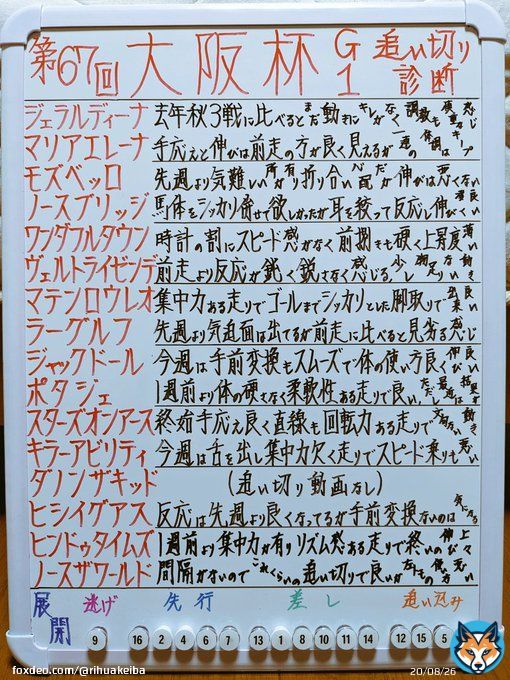 第67回 大阪杯 G1 追い切り診断
ジェラルディーナ 去年秋3戦に比べるとまだ動きにキレがなく調教も
マリアエレーナ 手応えと伸びは前走の方が良く見えるが一連の体調はキープ
モズベッロ 先週より気難しい所有り折り合い心配だが伸びは悪くない
ノースブリッジ 馬体をシッカリ併せて欲しかったが耳を絞って反応し伸びが良い
ワンダフルタウン 時計の割にスピード感がなく前捌きも硬く上昇度薄い
ヴェルトライゼンデ 前走より反応が鈍く鋭さなく感じる、少し
マテンロウレオ 集中力ある走りでゴールまでシッカリとした脚取りで出来良い
ラーグルフ 先週より気迫面は出てるが前走に比べると見劣る感じ
ジャックドール 今週は手前変換もスムーズで体の使い方良く伸び良い
ポタジェ 1週前より体の硬さなく柔軟性ある走りで良い、ただ最近結果が
スターズオンアース 終始手応え良く直線も回転力ある走りで文句ない動き
キラーアビリティ 今週は舌を出し集中力欠く走りでスピード乗りも悪い
ダノンザキッド (追い切り動画なし)
ヒシイグアス 反応は先週より良くなってるが手前変換ないのは気になる
ヒンドゥタイムズ 1週前より集中力が有りリズム感ある走りで終いの伸び上々
ノースザワールド 間隔がないのでこれくらいの追い切りで良いが
展開 逃げ 先行 差し 追い込み
9 16 2 4 6 1 13 8 3 7 11 14 12 15 5
foxdeo.com/@rihuakeiba
20/08/26